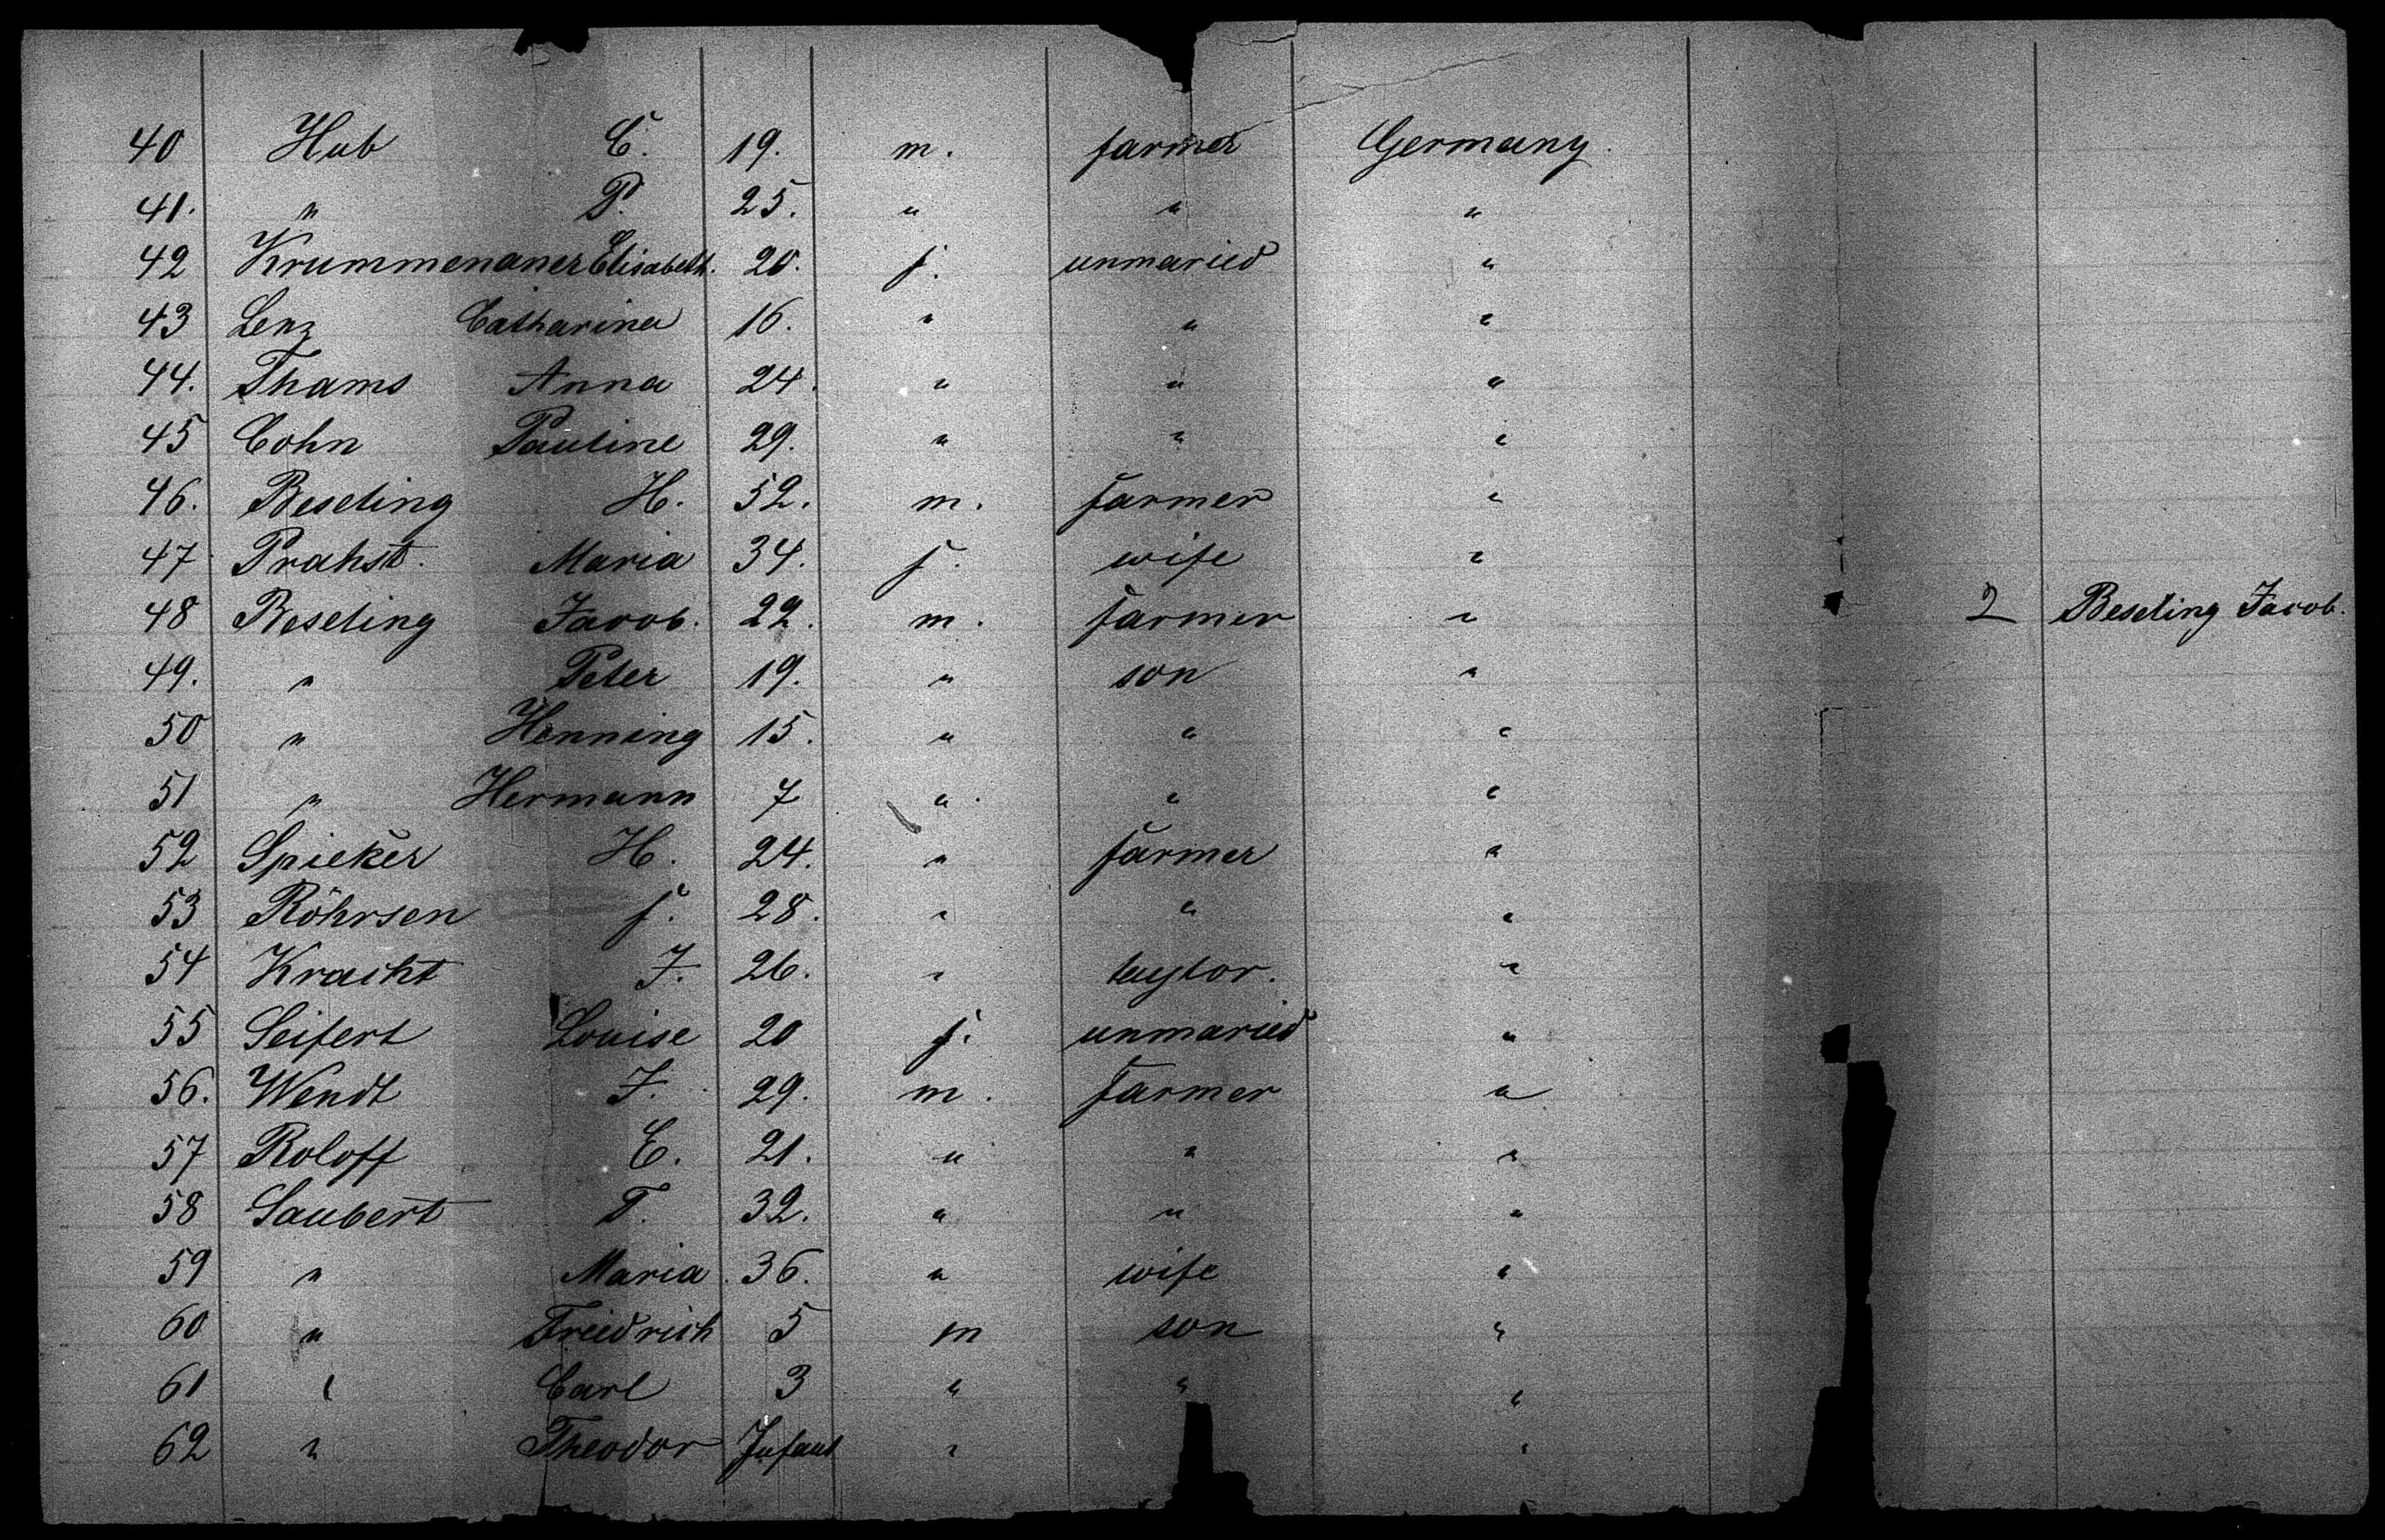 40 Hub C. 19. m. farmer Germany.
41. " P. 25. " " "
42 Krummenaner Elisabeth. 20. f. unmaried "
43 Lenz Catharina 16. " " "
44. Thams Anna 24. " " "
45 Cohn Pauline 29. " " "
46. Beseling H. 52. m. farmer "
47 Prahst. Maria 34. f. wife "
48 Beseling Jacob. 22. m. farmer " 2 Beseling Jacob.
49. " Peter 19. " son "
50 " Henning 15. " " "
51 " Hermann 7 " " "
52 Spieker H. 24. " farmer "
53 Röhrsen f. 28. " " "
54 Kracht J. 26. " taylor. "
55 Seifert Louise 20 f. unmaried "
56. Wendt J. 29. m. farmer "
57 Roloff C. 21. " " "
58 Saubert T. 32. " " "
59 " Maria 36. " wife "
60 " Friedrich 5 m son "
61 " Carl 3 " " "
62 " Theodor Infant " "